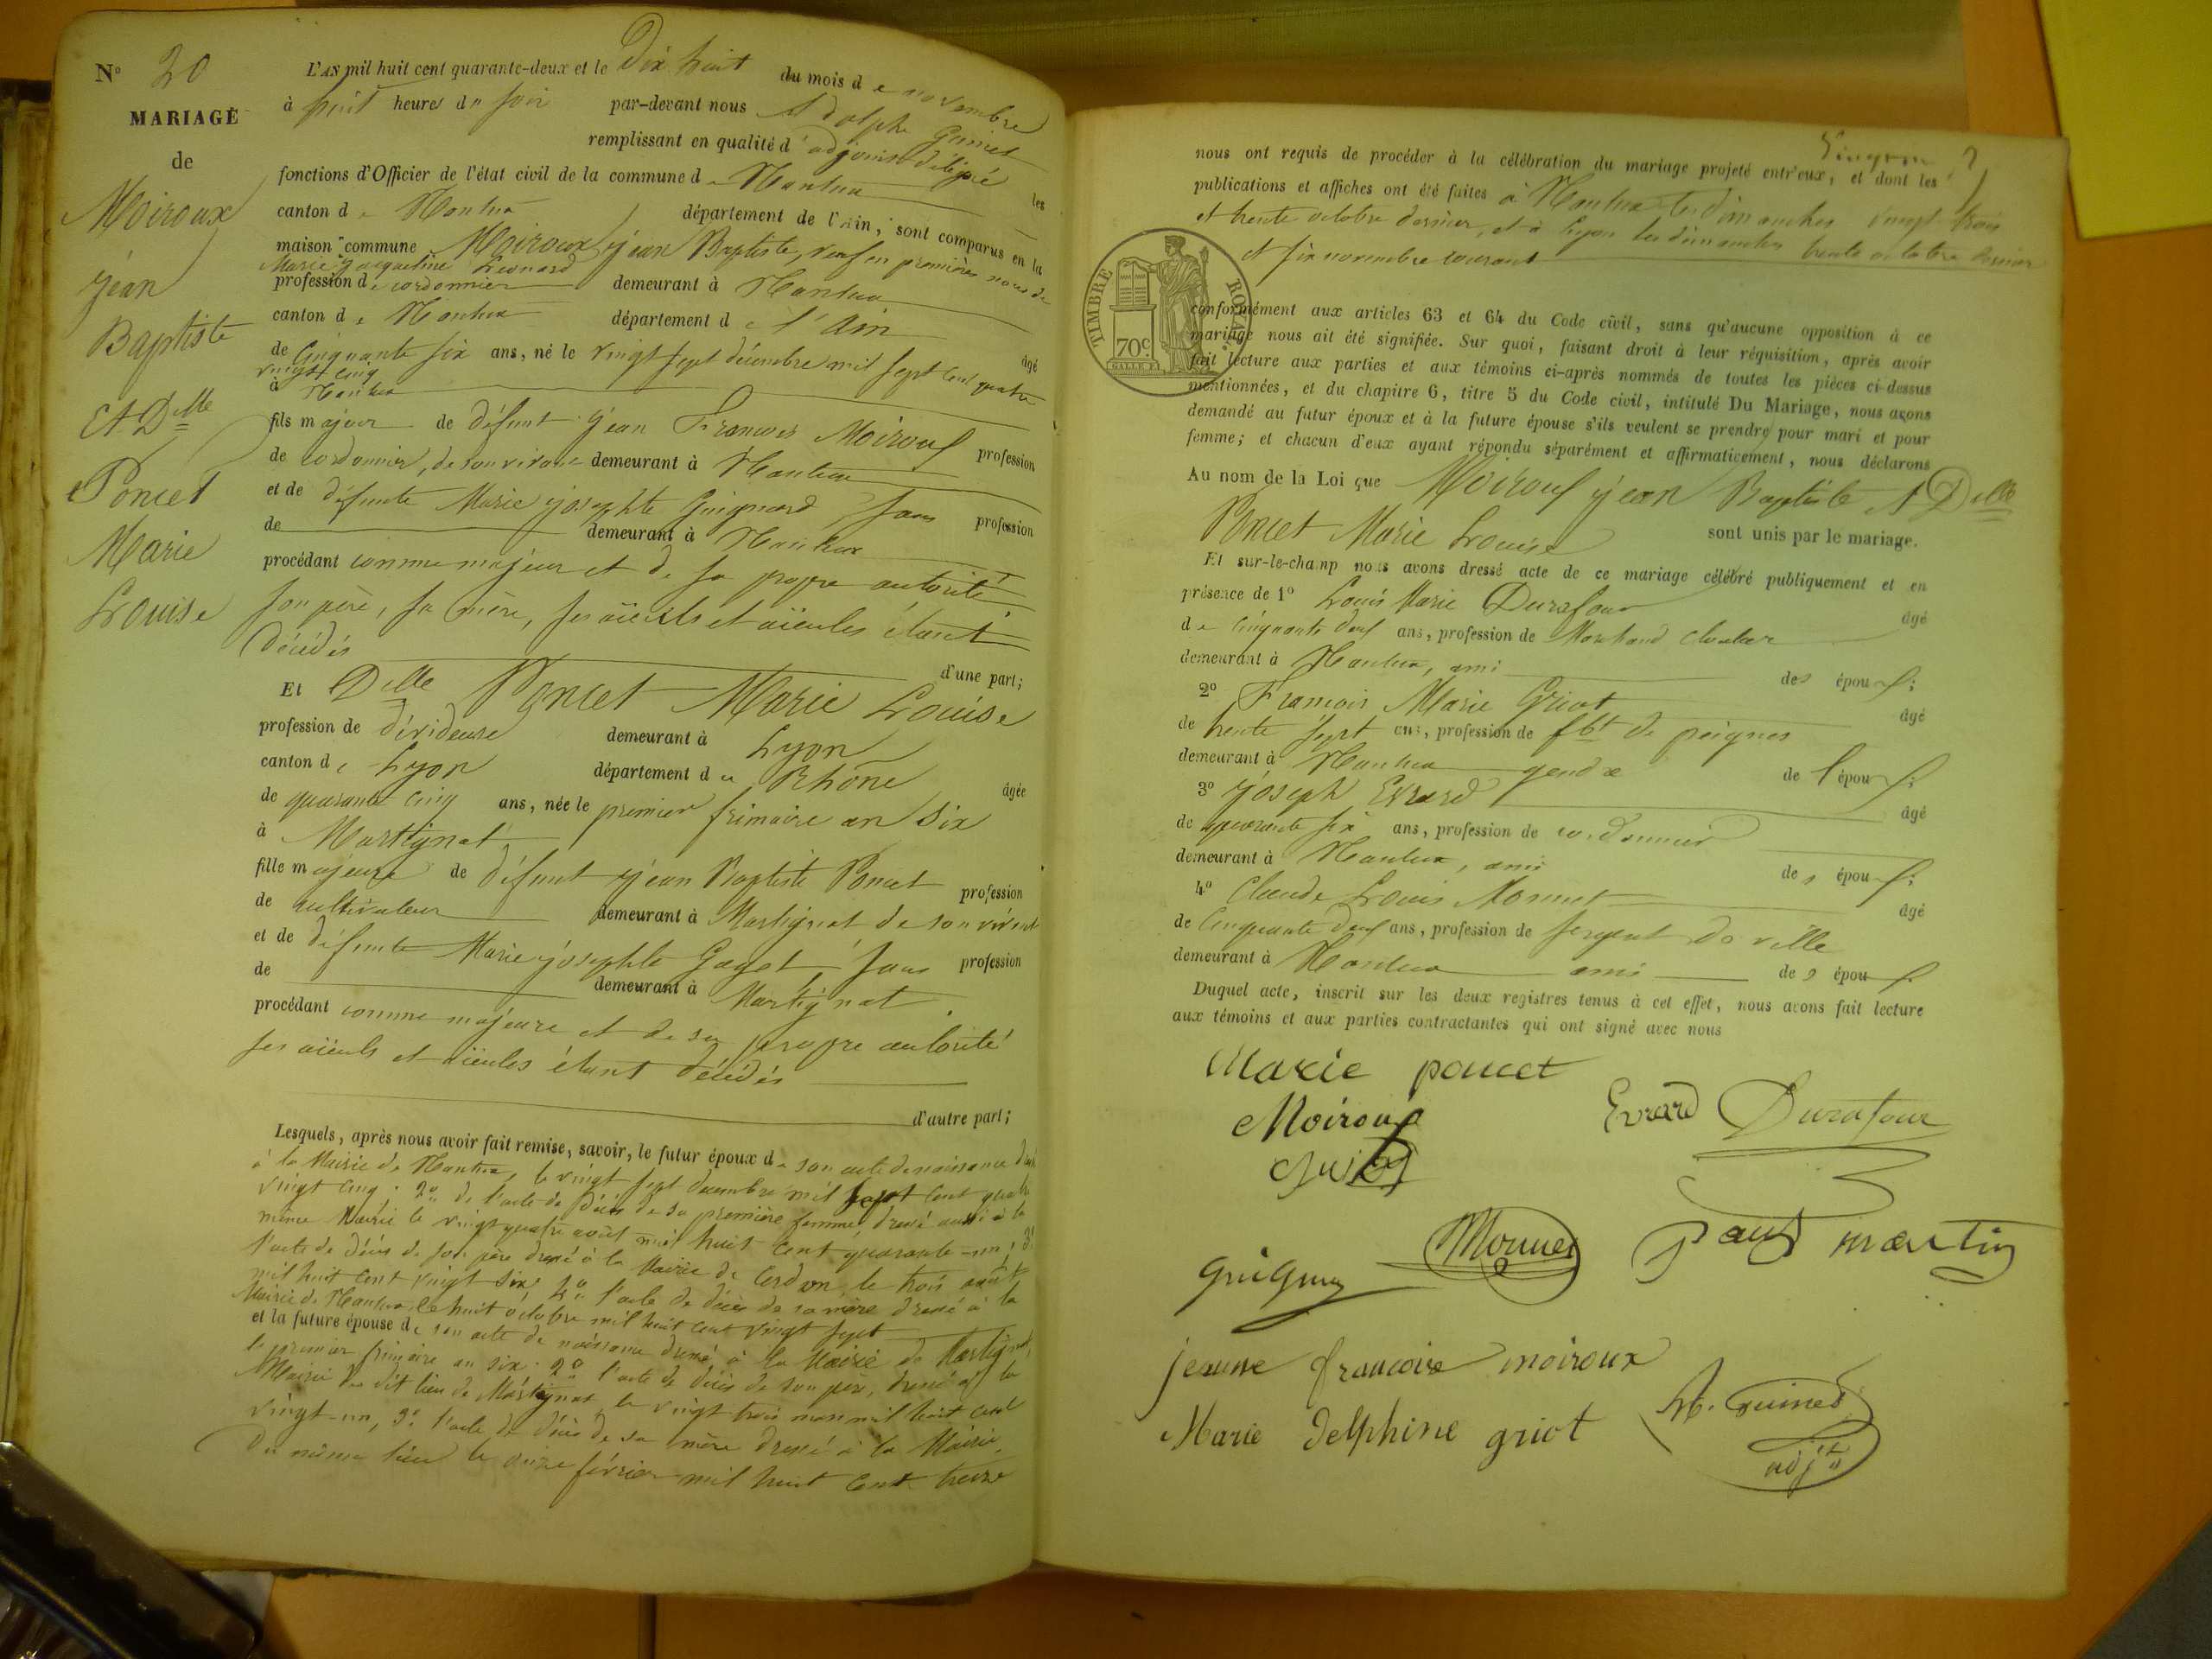 N° 20
MARIAGE
de
Moiroux
jean
Baptiste
Et Dlle
Poncet
Marie
Louise
L'AN mil huit cent quarante-deux et le Dix huit du mois de novembre
à huit heures du soir par-devant nous Adolphe Guinet
remplissant en qualité d'adjoint délégué les
fonctions d'Officier de l'état civil de la commune de Nantua
canton de Nantua département de l'Ain, sont comparus en la
maison commune Moiroux jean Baptiste, veuf en premières noces de
Marie Jacqueline Leonard
profession de cordonnier demeurant à Nantua
canton de Nantua département de l'Ain
âgé
de Cinquante six ans, né le vingt sept décembre mil sept cent quatre
vingt cinq
à Nantua
fils majeur de défunt jean François Moiroux profession
de cordonnier, de son vivant demeurant à Nantua
et de défunte Marie josephte Guignard, sans profession
de demeurant à Nantua
procédant comme majeur et de sa propre autorité,
son père, sa mère, ses aïeuls et aïeules étant
décédés
d'une part;
Et Dlle Poncet Marie Louise
profession de dévideuse demeurant à Lyon
canton de Lyon département du Rhône
âgée
de quarante cinq ans, née le premier frimaire an six
à Martignat
fille majeure de défunt jean Baptiste Poncet profession
de cultivateur demeurant à Martignat de son vivant
et de défunte Marie josephte Gaget, sans profession
de demeurant à Martignat
procédant comme majeure et de sa propre autorité
ses aïeuls et aïeules étant décédés
d'autre part;
Lesquels, après nous avoir fait remise, savoir, le futur époux de son acte de naissance
à la Mairie de Nantua, le vingt sept decembre mil sept cent quatre
vingt cinq. 2° de l'acte de décès de sa première femme, dressé aussi à la
même Mairie le vingt quatre août mil huit cent quarante-un, 3°
l'acte de décès de son père dressé à la Mairie de Cerdon, le trois août
mil huit cent vingt six, 4° l'acte de décès de sa mère dressé à la
Mairie de Nantua, le huit octobre mil huit cent vingt sept
et la future épouse de son acte de naissance dressé à la Mairie de Martignat,
le premier frimaire an six. 2° l'acte de décès de son père, dressé à la
Mairie du dit lieu de Martignat le vingt trois mars mil huit cent
vingt-un, 3° l'acte de décès de sa mère dressé à la Mairie
du même lieu le onze février mil huit cent treize
nous ont requis de procéder à la célébration du mariage projeté entr'eux, et dont les
publications et affiches ont été faites à Nantua les dimanches vingt-trois
et trente octobre dernier, et à Lyon les dimanches trente octobre dernier
et six novembre courant
TIMBRE ROYAL
70c
conformément aux articles 63 et 64 du Code civil, sans qu'aucune opposition à ce
mariage nous ait été signifiée. Sur quoi, faisant droit à leur réquisition, après avoir
fait lecture aux parties et aux témoins ci-après nommés de toutes les pièces ci-dessus
mentionnées, et du chapitre 6, titre 5 du Code civil, intitulé Du Mariage, nous avons
demandé au futur époux et à la future épouse s'ils veulent se prendre pour mari et pour
femme; et chacun d'eux ayant répondu séparément et affirmativement, nous déclarons
Au nom de la Loi que Moiroux jean Baptiste et Dlle
Poncet Marie Louise sont unis par le mariage.
Et sur-le-champ nous avons dressé acte de ce mariage célébré publiquement et en
présence de 1° Louis Marie Durafour
âgé
de Cinquante deux ans, profession de Marchand
demeurant à Nantua, ami des époux;
2° François Marie Griot
âgé
de trente sept ans, profession de fbt de peignes
demeurant à Nantua gendre de l'époux;
3° joseph Evrard
âgé
de quarante six ans, profession de cordonnier
demeurant à Nantua, ami des époux;
4° Claude Louis Monnet
âgé
de Cinquante deux ans, profession de sergent de ville
demeurant à Nantua ami des époux.
Duquel acte, inscrit sur les deux registres tenus à cet effet, nous avons fait lecture
aux témoins et aux parties contractantes qui ont signé avec nous
Marie poncet
Moiroux
Evrard Durafour
Monnet
paul martin
jeanne francoise moiroux
Marie delphine griot
A. Guinet
adjt